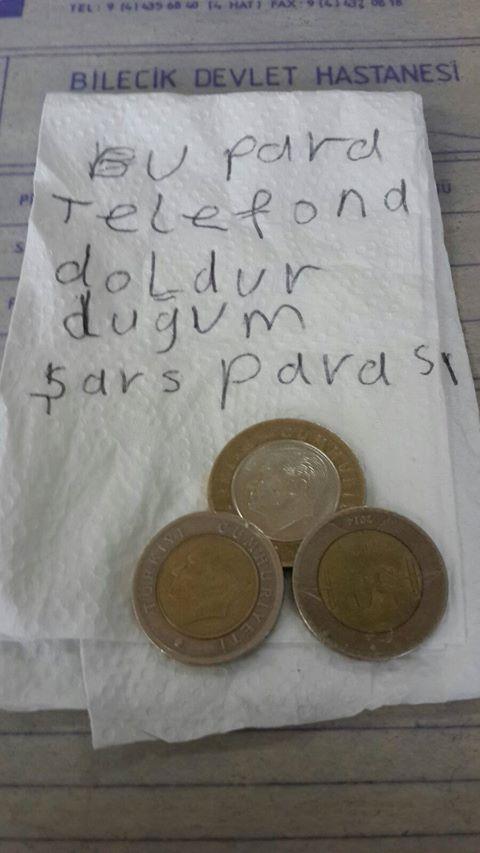 TEL: 9 (4) 435 68 40 (4 HAT) FAX: 9 (4) 432 08 18
BİLECİK DEVLET HASTANESİ
BU para
Telefona
doldur
duğum
şars parası
TÜRKİYE CUMHURİYETİ
2014